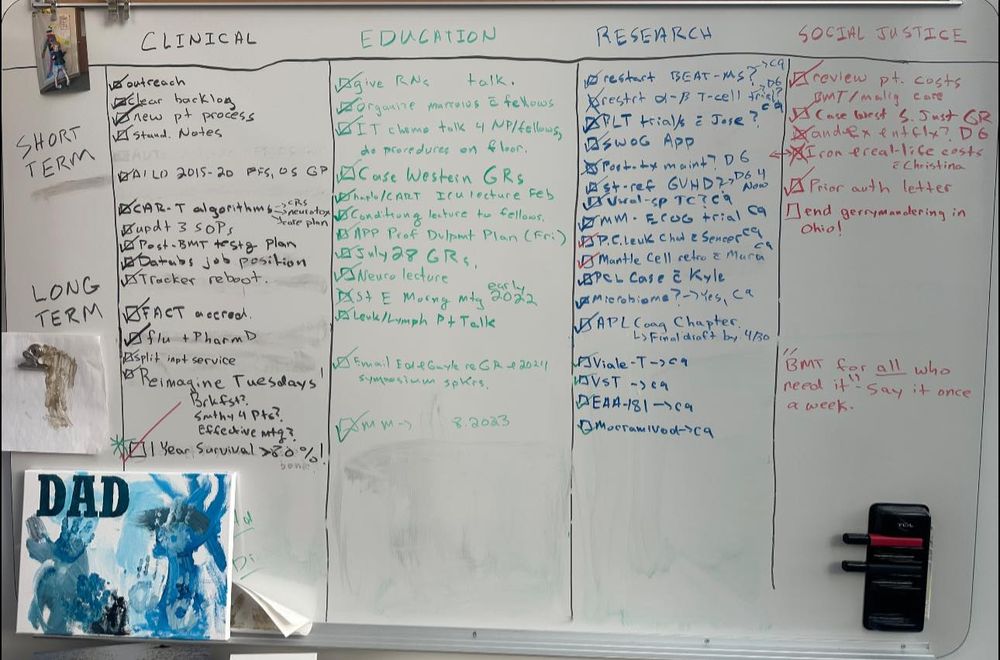 CLINICAL
EDUCATION
RESEARCH
SOCIAL JUSTICE
SHORT
TERM
LONG
TERM
outreach
clear backlog
new pt process
Stand. Notes
AILD 2015-20 PFS, OS GP
CAR-T algorithms → CRS
neurotox
care plan
updt 3 SOPs
Post-BMT testg Plan
Databs job position
Tracker reboot.
FACT accred.
flu + PharmD
split inpt service
Reimagine Tuesdays!
Brkfst?
Smthy 4 Pts?
Effective mtg?
1 Year Survival >80%!
give RNs talk.
Organize marrows c̄ fellows
IT chemo talk 4 NP/fellows,
do procedures on floor.
Case Western GRs
haplo/CART ICU lecture Feb
Conditiong lecture to fellows.
APP Prof Dvlpmt Plan (Fri)
July 28 GRs,
Neuro lecture
St E Morng mtg early 2022
Leuk/Lymph Pt Talk
Email re GR
symposium spkrs.
MM → 8.2023
restart BEAT-MS? → ca
restrt α-β T-cell trial? D6
PLT trial/s c̄ Jose? ca
SWOG App
Post-tx maint? D6
st-ref GVHD? → D6 4
Now
Viral-sp TC? ca
MM- ECOG trial ca
P.C. Leuk Chd c̄ Spencer ca
Mantle Cell retro c̄ Mura ca
PCL Case c̄ Kyle
Microbiome? → Yes, Ca
APL Coag Chapter.
↳ Final draft by 4/30
Viale-T → ca
VST → ca
EAA-181 → ca
→ ca
review pt. costs
BMT/malig care
Case West S. Just GR
D6
Iron + life costs
c̄ Christina
Prior auth letter
end gerrymandering in
Ohio!
"BMT for all who
need it" - Say it once
a week.
DAD
TCL